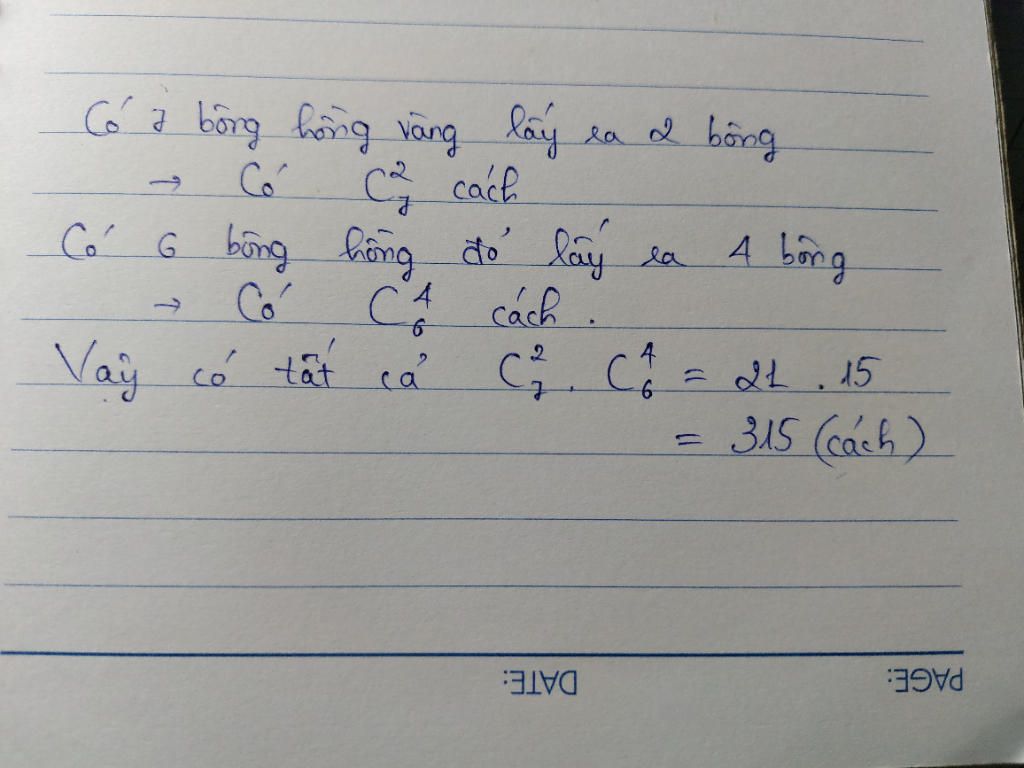 Có 7 bông hồng vàng lấy ra 2 bông
→ Có C₇² cách
Có 6 bông hồng đỏ lấy ra 4 bông
→ Có C₆⁴ cách.
Vậy có tất cả C₇² . C₆⁴ = 21 . 15
= 315 (cách)
DATE:
PAGE: